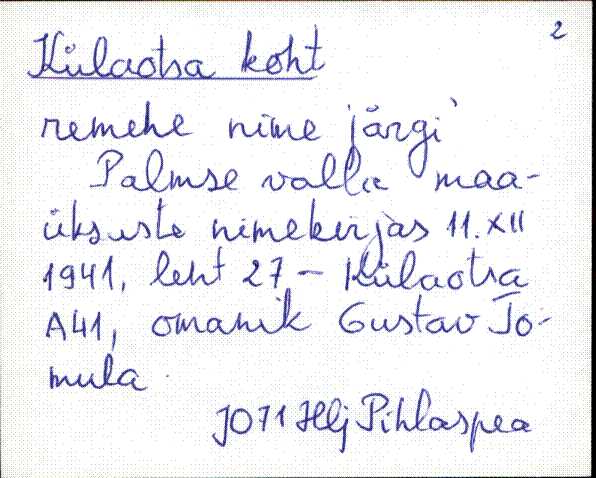 2
Külaotsa koht
remehe nime järgi
Palmse valla maa-
üksuste nimekirjas 11.XII
1941, leht 27 – Külaotsa
A41, omanik Gustav To-
mula.
JO71 Hlj Pihlaspea